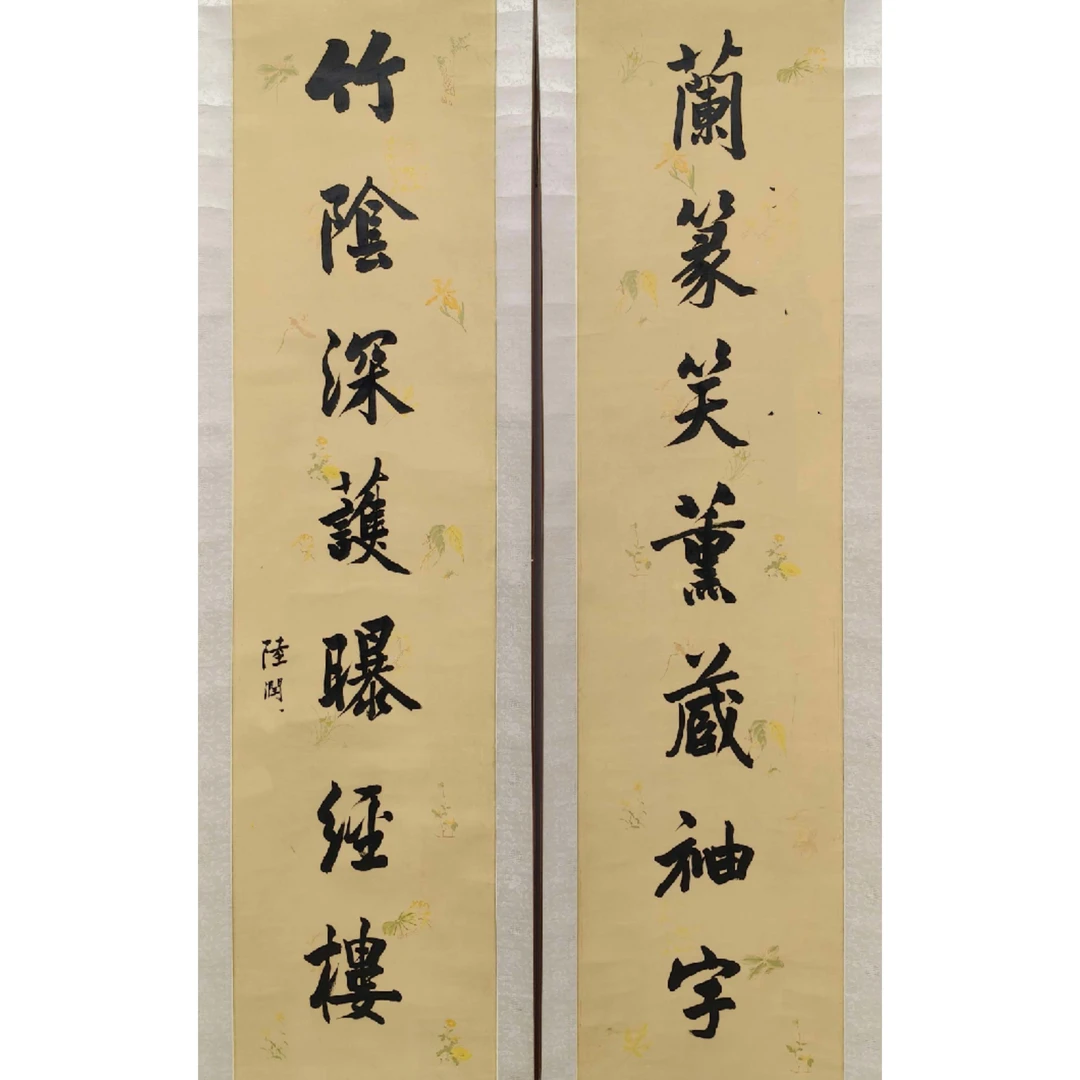 蘭篆笑薰蔵袖字
竹陰深護曝經樓
陸潤